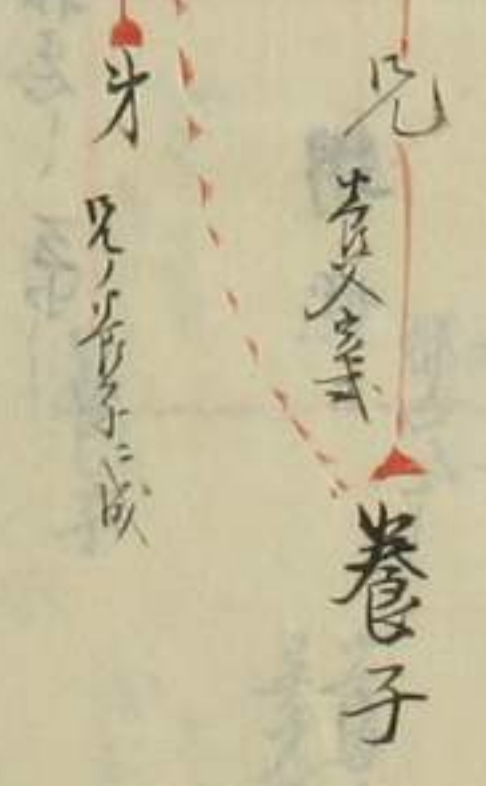 兄
養父実
養子
弟
兄ノ養子ニ成